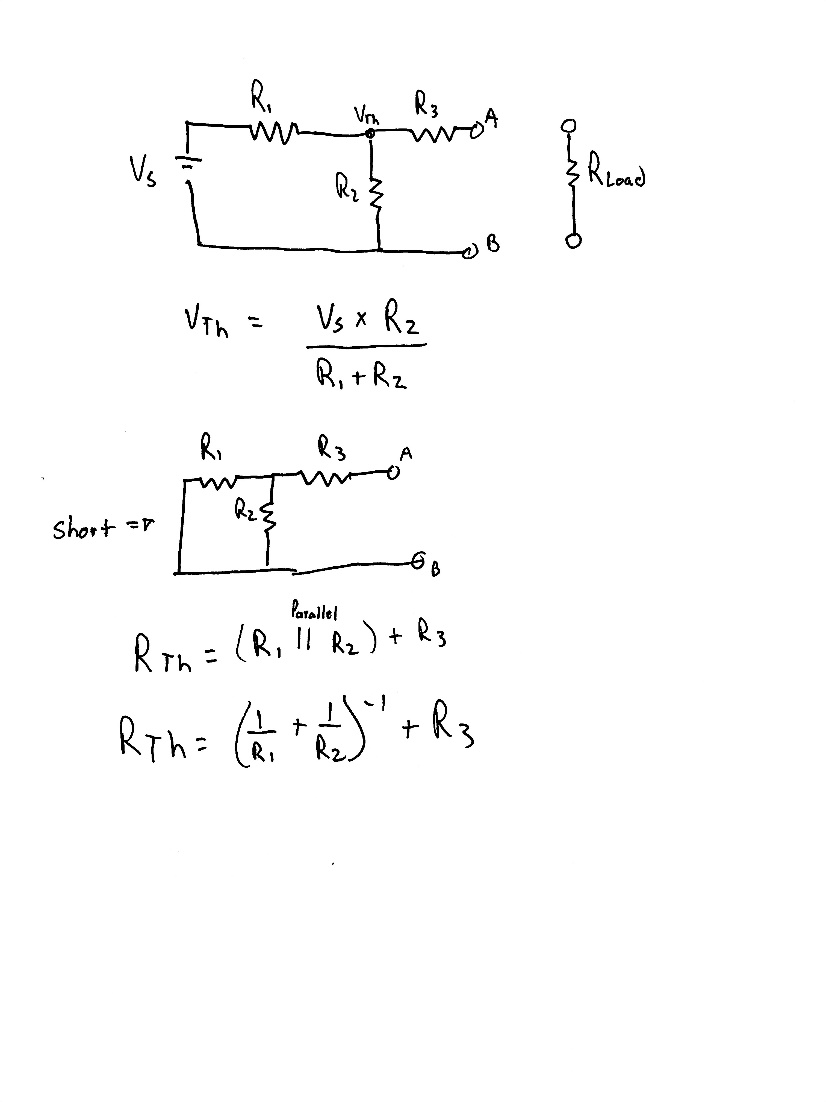 R₁ V_Th R₃ A
V_s R₂ R_Load
B
V_Th = (V_s × R₂) / (R₁ + R₂)
R₁ R₃ A
Short ⇒ R₂
B
Parallel
R_Th = (R₁ || R₂) + R₃
R_Th = (1/R₁ + 1/R₂)⁻¹ + R₃